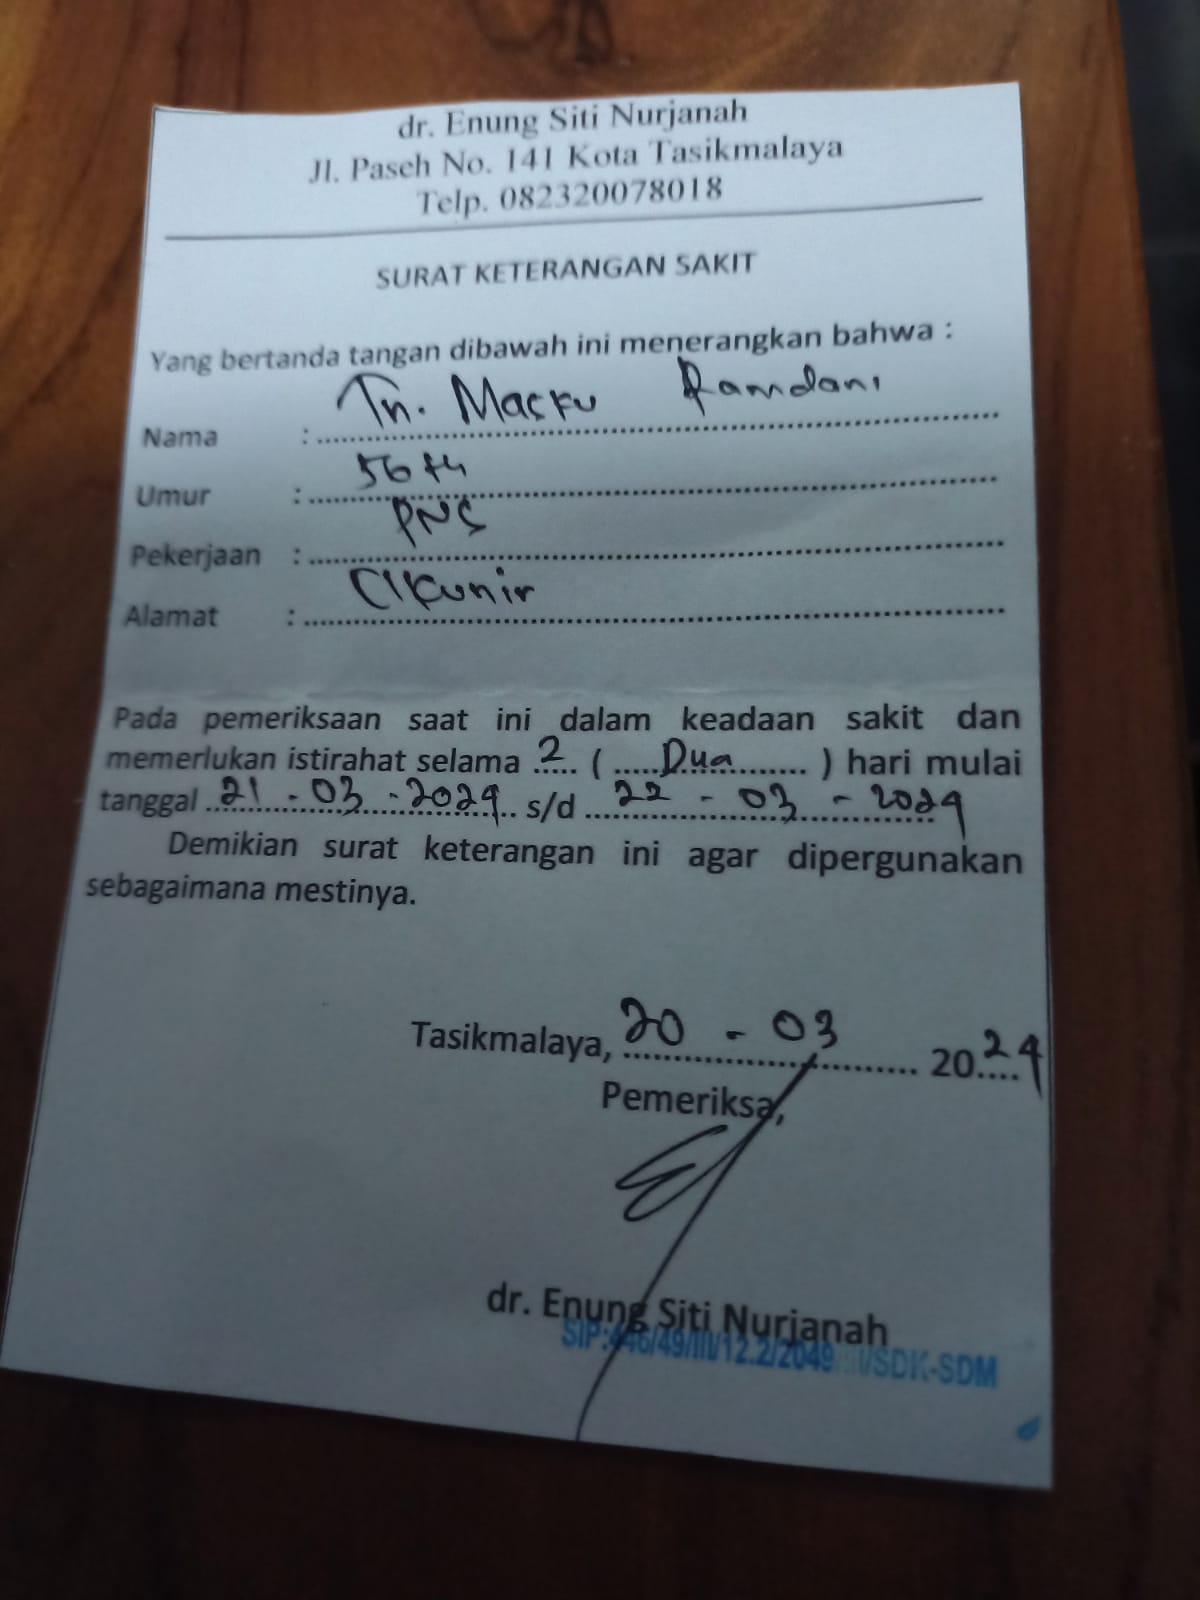 dr. Enung Siti Nurjanah
Jl. Paseh No. 141 Kota Tasikmalaya
Telp. 082320078018
SURAT KETERANGAN SAKIT
Yang bertanda tangan dibawah ini menerangkan bahwa :
Nama : Tn. Ramdani
Umur : 56 th
Pekerjaan : PNS
Alamat : Cikunir
Pada pemeriksaan saat ini dalam keadaan sakit dan
memerlukan istirahat selama 2 ( Dua ) hari mulai
tanggal 21 - 03 - 2024 s/d 22 - 03 - 2024
Demikian surat keterangan ini agar dipergunakan
sebagaimana mestinya.
Tasikmalaya, 20 - 03 2024
Pemeriksa,
dr. Enung Siti Nurjanah